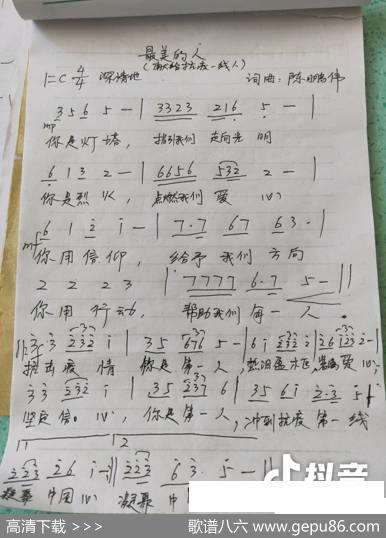 最美的人
(献给抗疫一线人)
1=C 4/4 深情地 词曲:陈鹏伟
3 5 6 5 - | 3 3 2 3 2 1 6 5 - |
mp
你是灯塔, 指引我们 走向光明
6 1 3 2 - | 6 6 5 6 5 3 2 2 - |
你是烈火, 点燃我们 爱心
6 1 2 i - | 7 · 7 6 7 6 3 · |
mf
你用信仰, 给予我们方向
2 2 2 3 | 7 7 7 7 6 · 7 5 - ||
你用行动, 帮助我们每一人。
抗击疫情 你是第一人,
3 3 2 3 2 i | 3 5 2 3 7 6 | 3 5 6 i 2 · 3 5
坚定信心, 你是第一人, 冲到抗疫第一线
1 2
2 2 3 2 6 i - :|| 2 2 3 6 3 · 5 - ||
凝聚中国心 凝聚中
抖音
高清下载 >>>
歌谱八六 www.gepu86.com